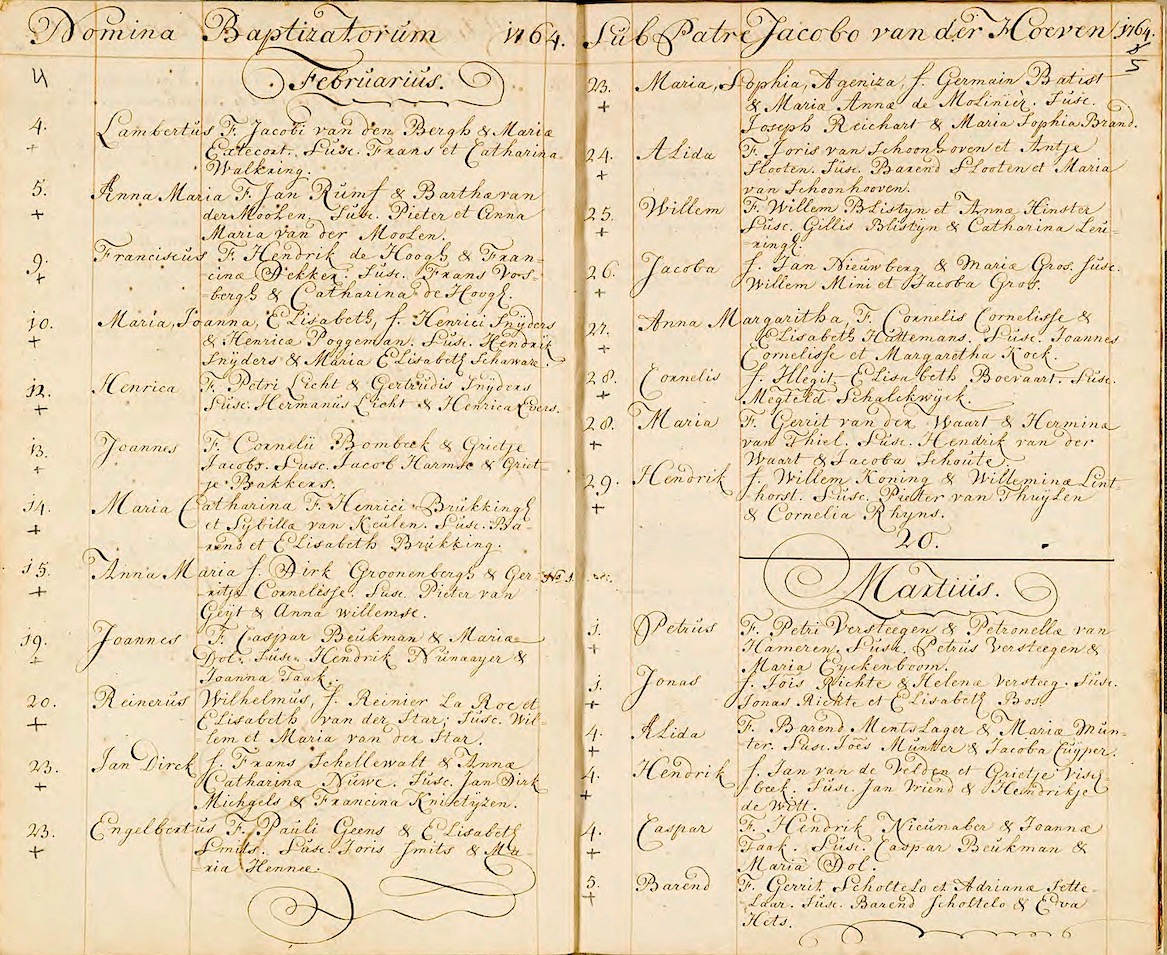 Nomina Baptizatorum 1764.
Februarius.
4. Lambertus F. Jacobi van den Bergh & Mariæ
+ Extecort. Susc. Frans et Catharina
Walkring.
5. Anna Maria F. Jan Rumf & Barthæ van
+ der Moolen, Susc. Pieter et Anna
Maria van der Moolen.
9. Franciscus F. Hendrik de Hoogh & Fran-
+ cinæ Dekker. Susc. Frans Vors-
-bergh & Catharina de Hoogh.
10. Maria, Joanna, Elisabeth, f. Henrici Snÿders
+ & Henricæ Poggeman. Susc. Hendrik
Snÿders & Maria Elisabeth Schawarz.
12. Henrica F. Petri Licht & Gertrudis Snÿders
+ Susc. Hermanus Licht & Henrica Evers.
13. Joannes F. Cornelii Bombeek & Grietje
+ Jacobs. Susc. Jacob Harmse & Griet-
je Bakkers.
14. Maria Catharina F. Henrici Brükkingh
+ et Sybilla van Keulen. Susc. Ba-
-rend et Elisabeth Brükking.
15. Anna Maria f. Dirk Groonenbergh & Ger-
+ ritje Cornelisse. Susc. Pieter van
Geyt & Anna Willemse.
19. Joannes F. Caspar Beukman & Mariæ
+ Dol. Susc. Hendrik Nünaayer &
Joanna Taak.
20. Reinerus Wilhelmus, f. Reinier La Roc et
+ Elisabeth van der Star; Susc. Wil-
lem et Maria van der Star.
23. Jan Dirck f. Frans Schellewalt & Annæ
+ Catharinæ Nuwe. Susc. Jan Dirk
Michgels & Francina Knietyzen.
23. Engelbertus F. Pauli Geens & Elisabeth
+ Smits. Susc. Joris Smits & Ma-
-ria Henneæ.
Sub Patre Jacobo van der Hoeven 1764.
5
23. Maria, Sophia, Ageniza, f. Germain Batist
+ & Mariæ Annæ de Molinier. Susc.
Joseph Reichart & Maria Sophia Brand.
24. Alida F. Joris van Schoonhoven et Antje
+ Slooten. Susc. Barend Slooten et Maria
van Schoonhooven.
25. Willem F. Willem Blistyn et Annæ Hinster
+ Susc. Gillis Blistyn & Catharina Leu-
-ringh.
26. Jacoba f. Jan Nieuwberg & Mariæ Gros. Susc.
+ Willem Mini et Jacoba Gros.
27. Anna Margaritha F. Cornelis Cornelisse &
+ Elisabeth Huttemans. Susc. Joannes
Cornelisse et Margaretha Kock.
28. Cornelis f. Illegit. Elisabeth Boevaart. Susc.
+ Megteld Schalckwyck.
28. Maria F. Gerrit van der Waart & Hermina
+ van Thiel. Susc. Hendrik van der
Waart & Jacoba Schoute.
29. Hendrik f. Willem Koning & Willeminæ Lint-
+ horst. Susc. Pieter van Thuÿlen
& Cornelia Rhyns.
20.
Martius.
1. Petrus F. Petri Versteegen & Petronellæ van
+ Hameren. Susc. Petrus Versteegen &
Maria Eyckenboom.
1. Jonas f. Jois Richte & Helenæ Versteeg. Susc.
+ Jonas Richte et Elisabeth Bos.
4. Alida F. Barend Mentslager & Mariæ Mün-
+ ter. Susc. Joes Münter & Jacoba Cuÿper.
4. Hendrik f. Jan van de Velden et Grietje Visj-
+ beek. Susc. Jan Vriend & Hendrikje
de Witt.
4. Caspar F. Hendrik Nieunaber & Joannæ
+ Taak. Susc. Caspar Beukman &
Maria Dol.
5. Barend F. Gerrit Scholtelo et Adrianæ Sette-
+ laar. Susc. Barend Scholtelo & Eva
Hets.